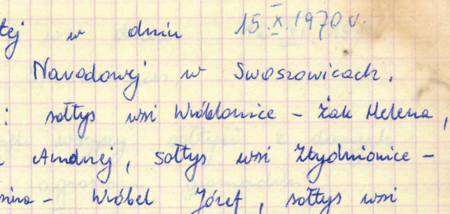 tej w dniu 15.X.1970 r.
Narodowej w Swoszowicach.
: sołtys wsi Wróblowice - Żak Helena,
Andrzej, sołtys wsi Zbydniowice -
- Wróbel Józef, sołtys wsi